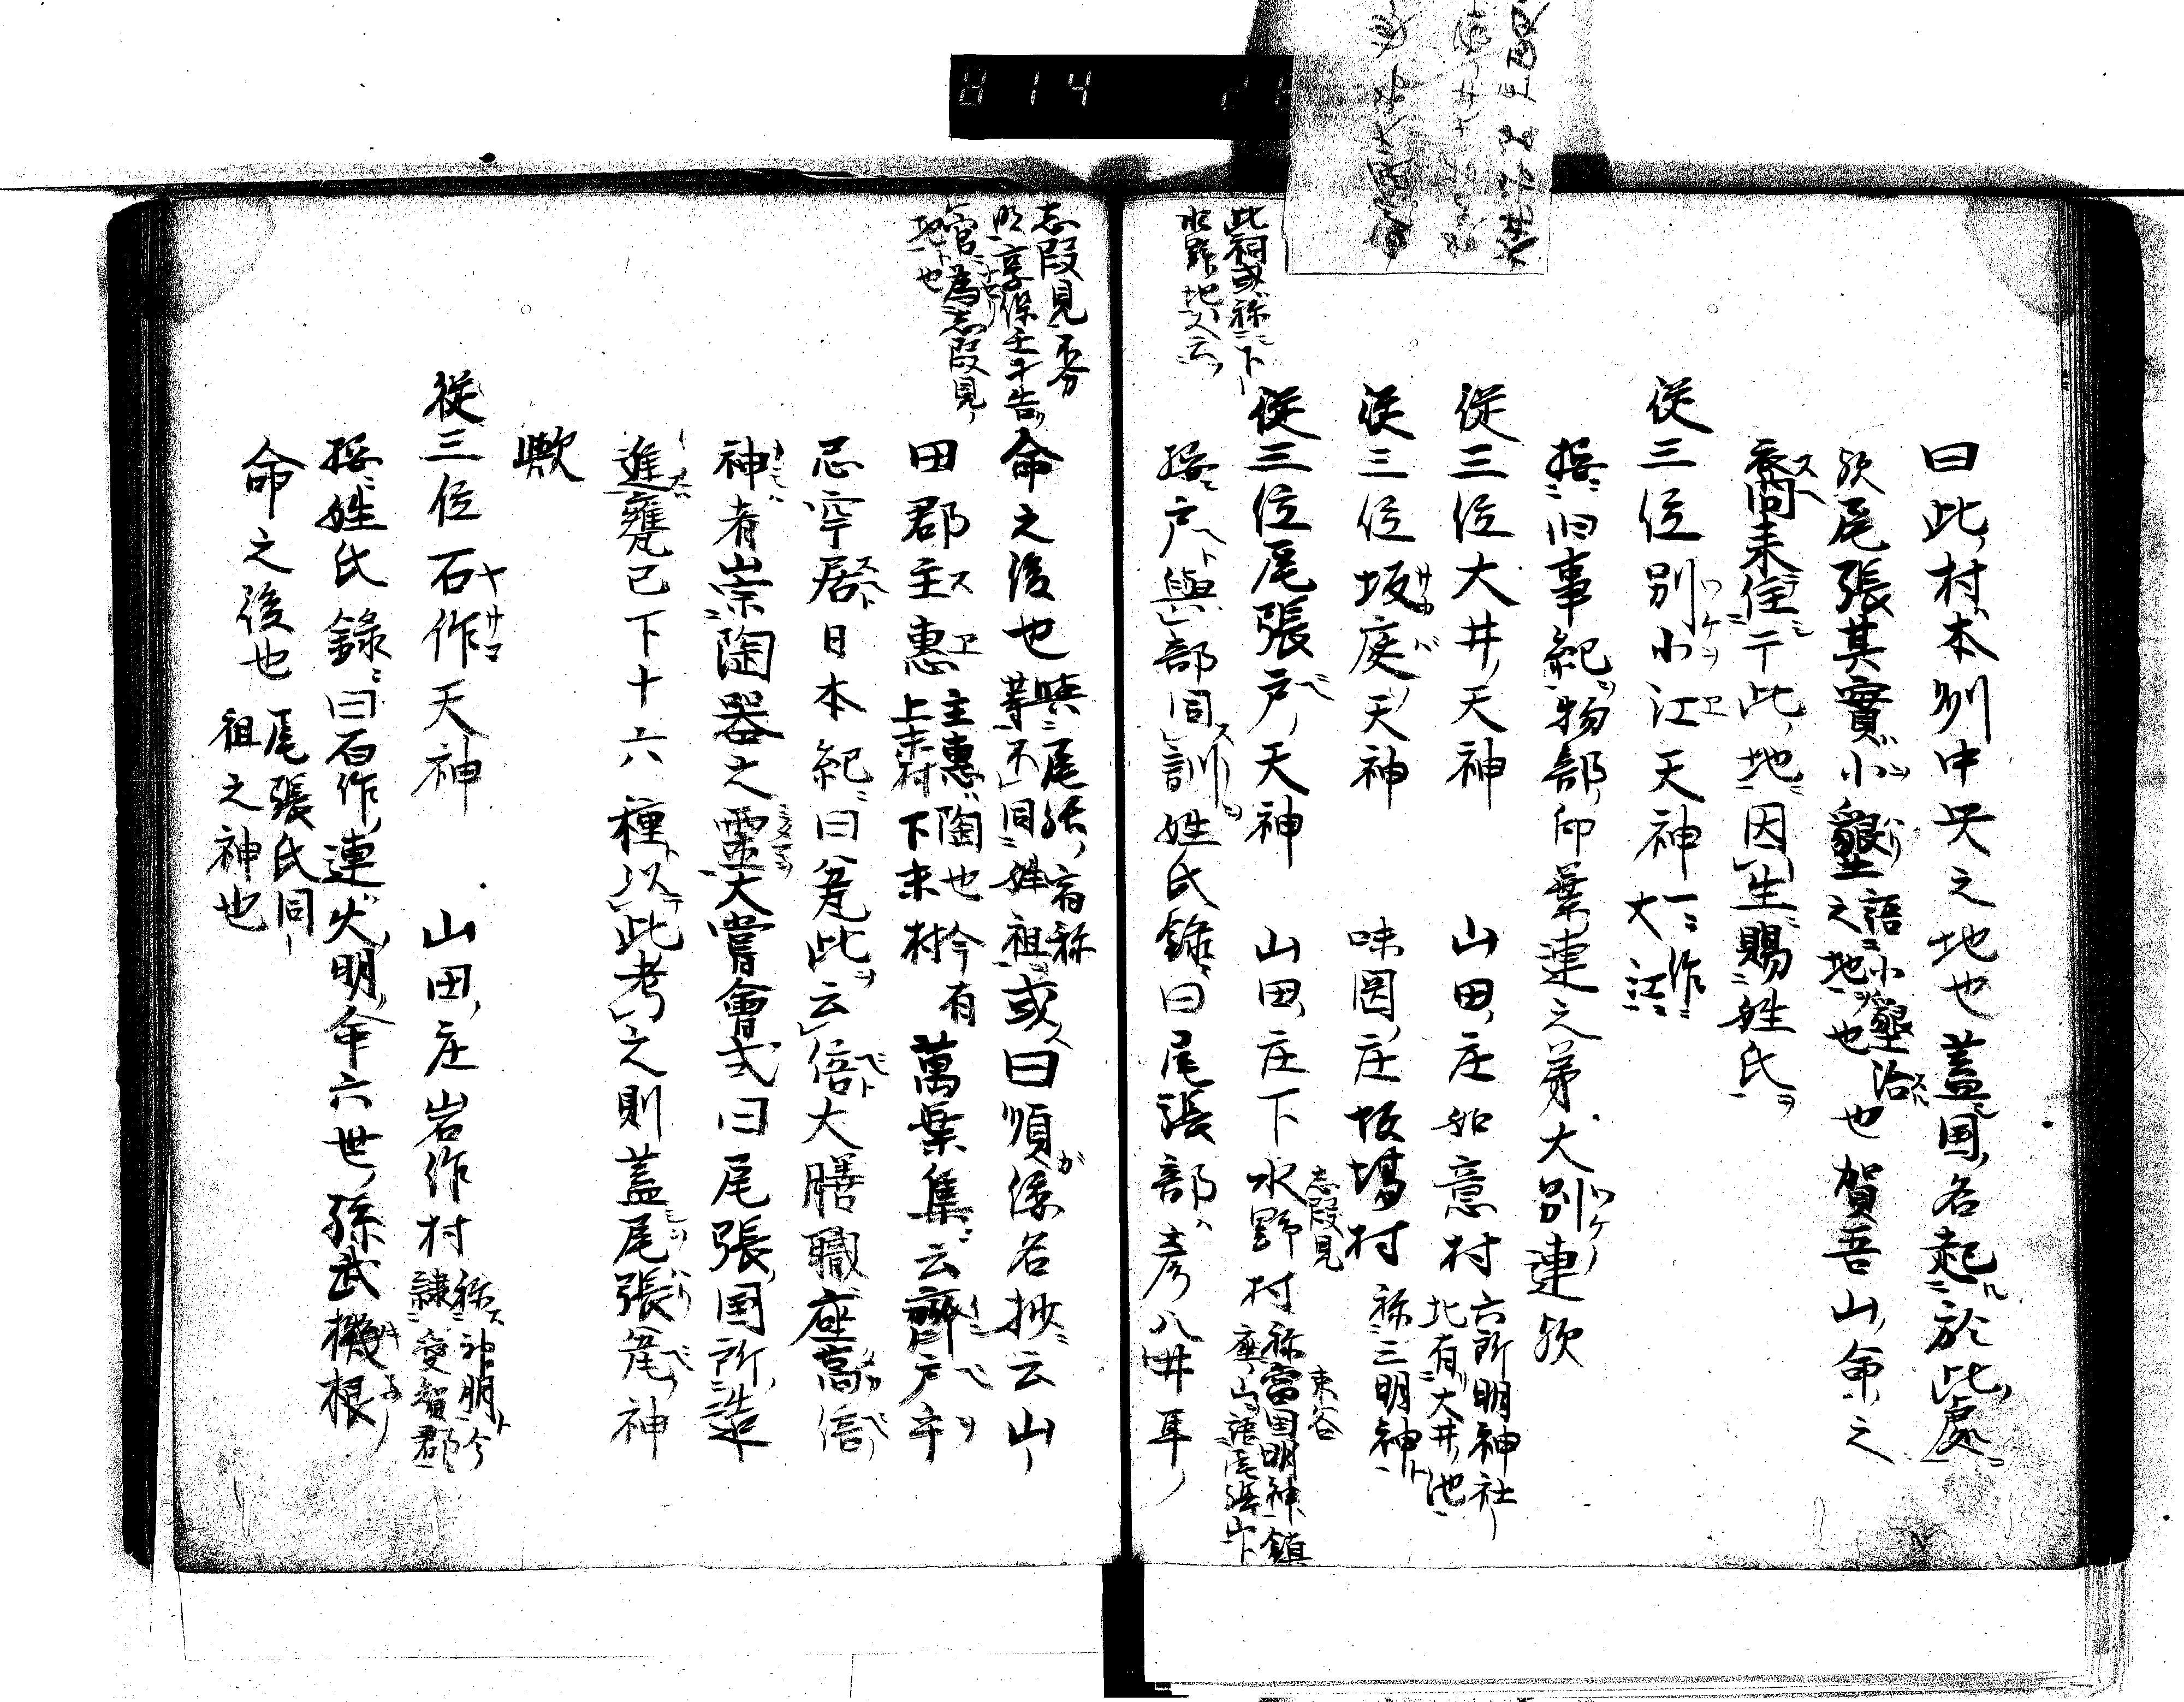 曰此村本州中央之地也蓋国名起於此處
欤尾張其實小墾之地也 語小墾治也賀吾山命之
裔向来住于此地因生賜姓氏
従三位別小江天神 一作大江
按旧事紀物部印葉連之弟大別連欤
従三位大井天神 山田庄如意村 六所明神社北有大井池
従三位坂庭天神 味岡庄坂場村 称三明神
従三位尾張戸天神 山田庄下水野村 称當国明神鎮座山語尾張山
志段見
東谷
按戸與部同訓姓氏録曰尾張部彦八井耳
此祠或称下
水野地云
命之後也 與尾張宿祢等不同姓祖 或曰順倭名抄云山
田郡主惠 主惠陶也今有上末村下末村 萬葉集云齊戸乎
忌穿居日本紀曰瓮此云倍大膳職座高倍
神者崇陶器之靈大嘗會式曰尾張国所造
進甕已下十六種以此考之則蓋尾張瓮神
歟
従三位石作天神 山田庄岩作村 称神明今隷愛智郡
按姓氏錄曰石作連火明命六世孫武椀根
命之後也 尾張氏同祖之神也
志段見
享保壬子告
官為志段見
地也
8 14